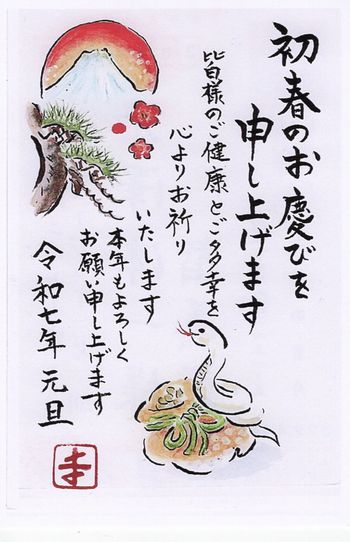 初春のお慶びを
申し上げます
皆様のご健康とご多幸を
心よりお祈り
いたします
本年もよろしく
お願い申し上げます
令和七年 元旦